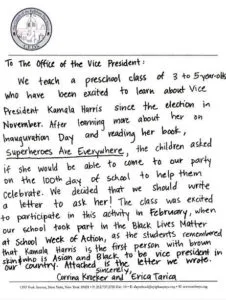 To The Office of the Vice President:
We teach a preschool class of 3 to 5-year-olds
who have been excited to learn about Vice
President Kamala Harris since the election in
November. After learning more about her on
Inauguration Day and reading her book,
Superheroes Are Everywhere, the children asked
if she would be able to come to our party
on the 100th day of school to help them
celebrate. We decided that we should write
a letter to ask her! The class was excited
to participate in this activity in February, when
our school took part in the Black Lives Matter
at School Week of Action, as the students remembered
that Kamala Harris is the first person with brown
skin who is Asian and Black to be vice president in
our country. Attached is the letter we wrote.
Sincerely,
and Erica Tariq